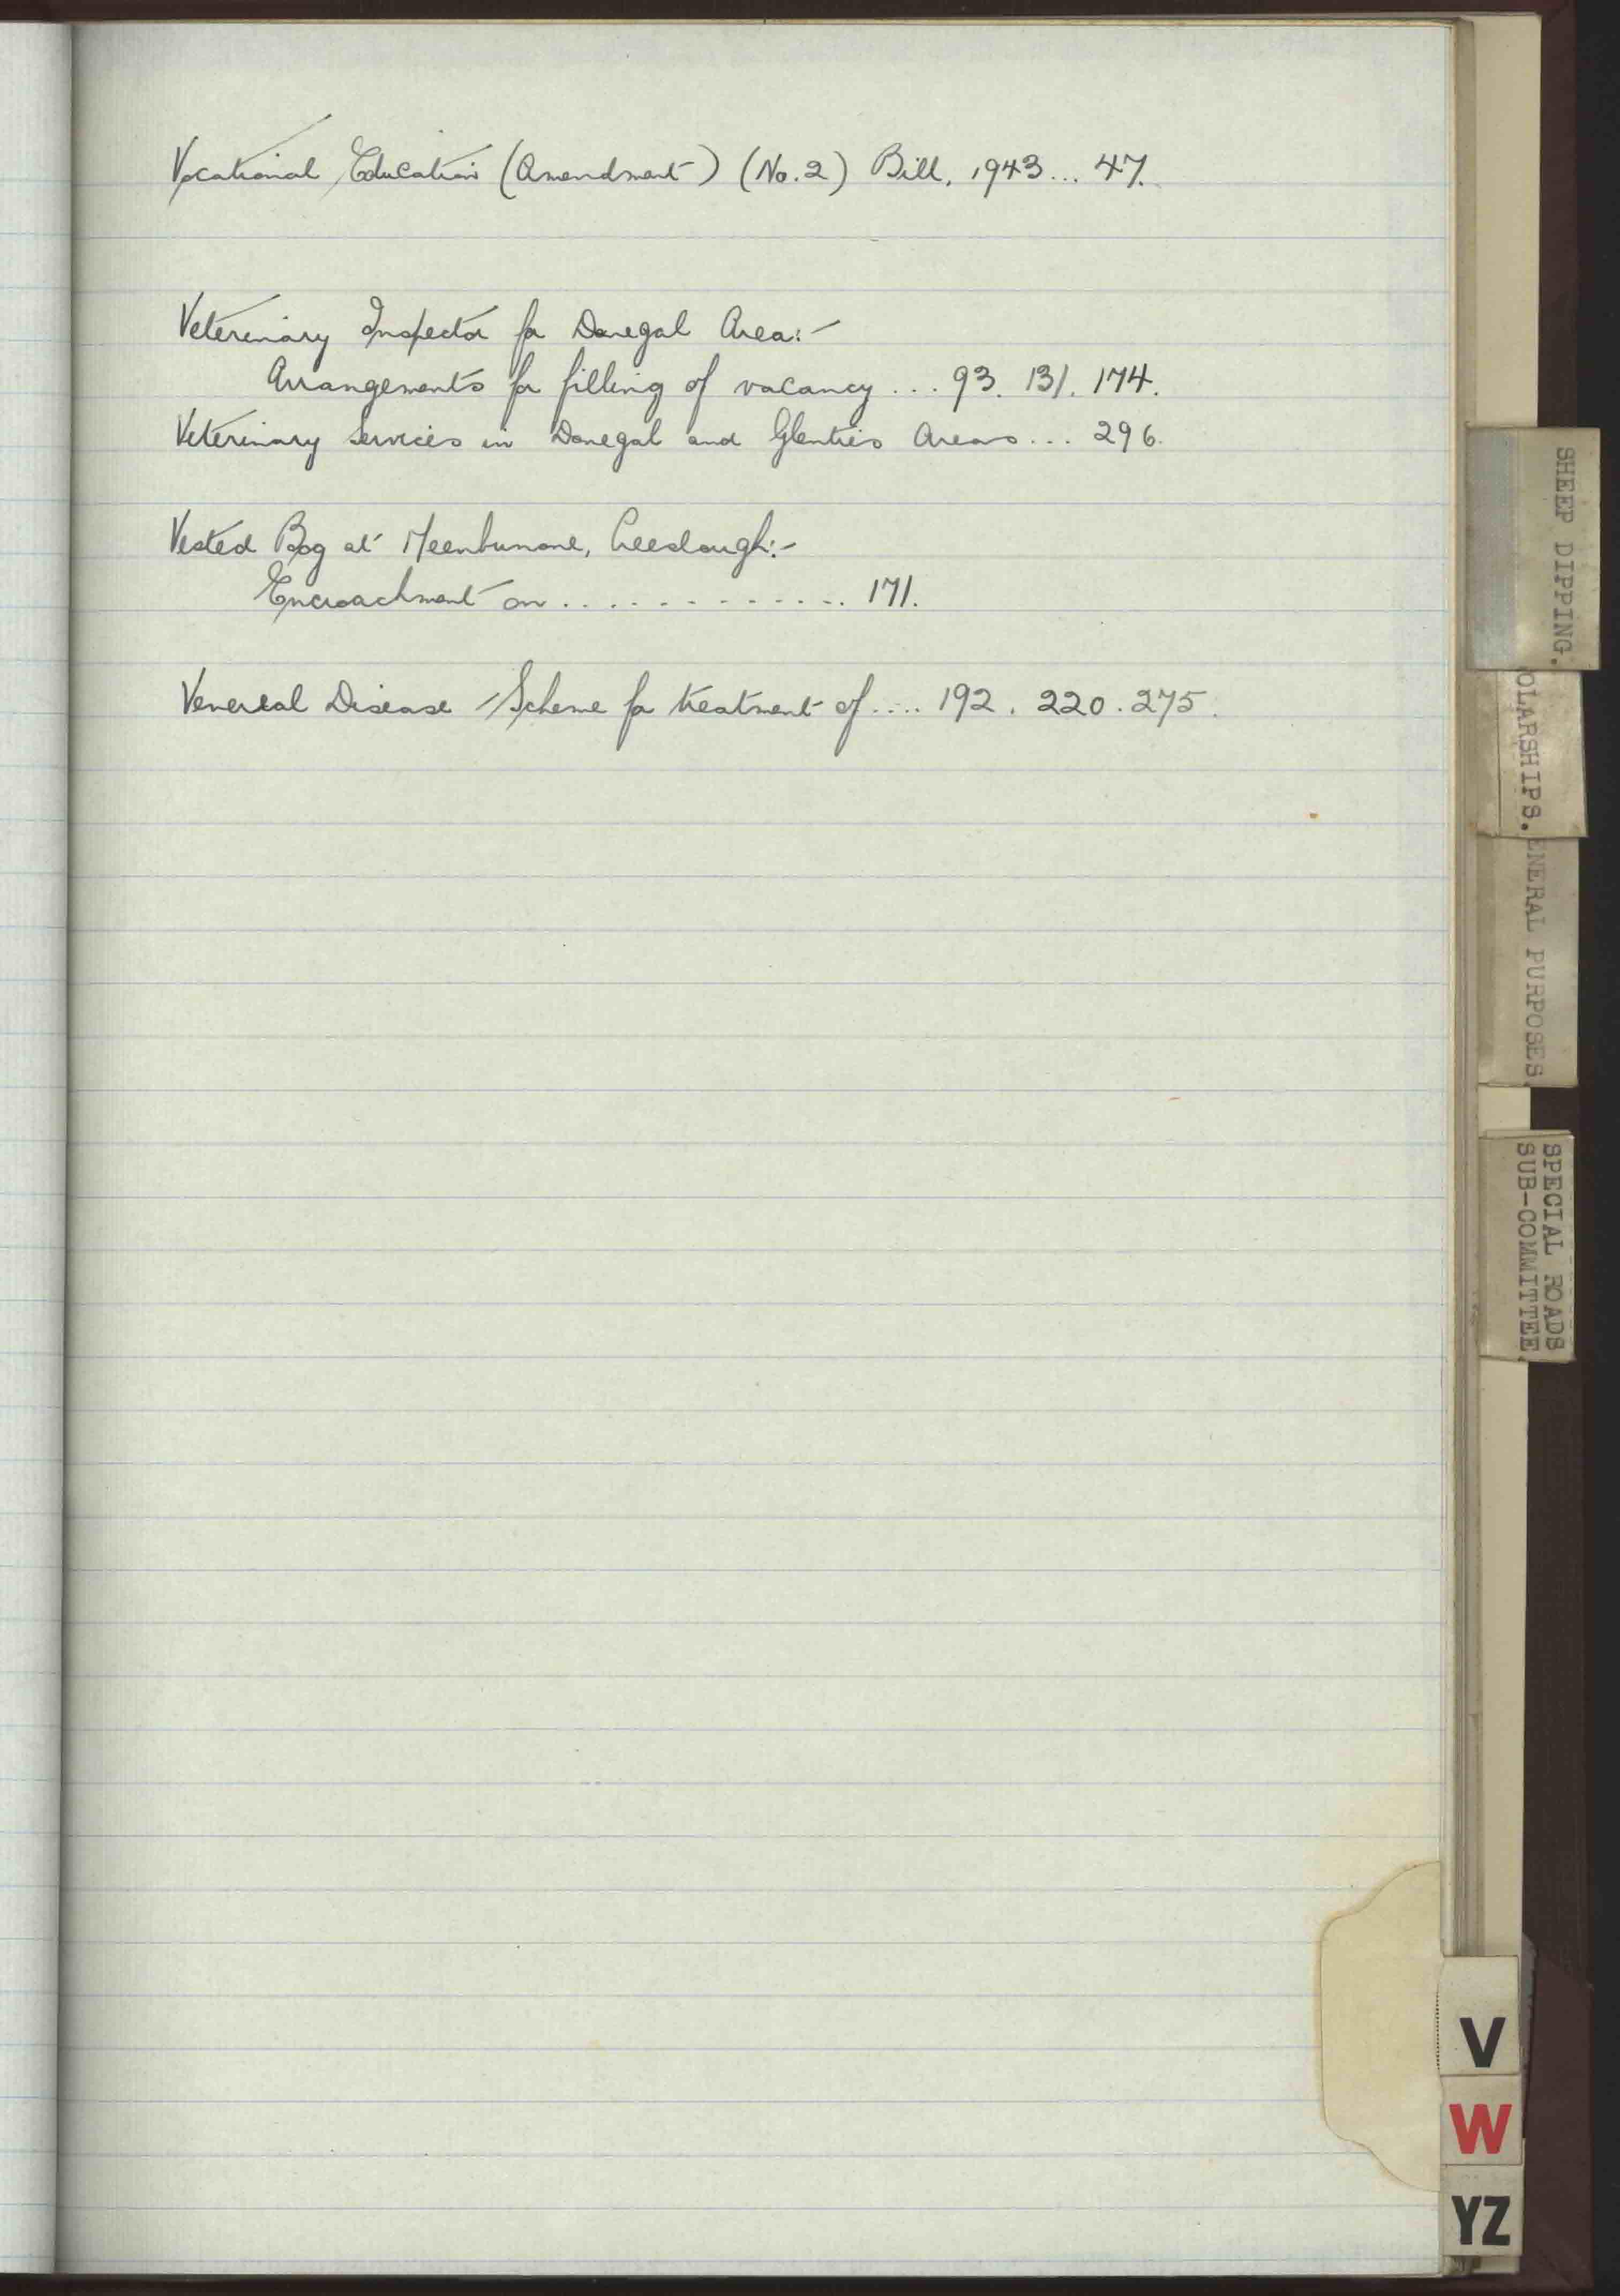 Vocational Education (Amendment) (No. 2) Bill, 1943 ... 47.
Veterinary Inspector for Donegal Area:-
Arrangements for filling of vacancy ... 93. 131. 174.
Veterinary Services in Donegal and Glenties Areas ... 296.
Vested Bog at Meenbunone, Creeslough:-
Encroachment on .............. 171.
Venereal Disease - Scheme for treatment of .... 192. 220. 275.
SHEEP DIPPING.
OLARSHIPS.
ENERAL PURPOSES
SPECIAL ROADS
SUB-COMMITTEE
V
W
YZ